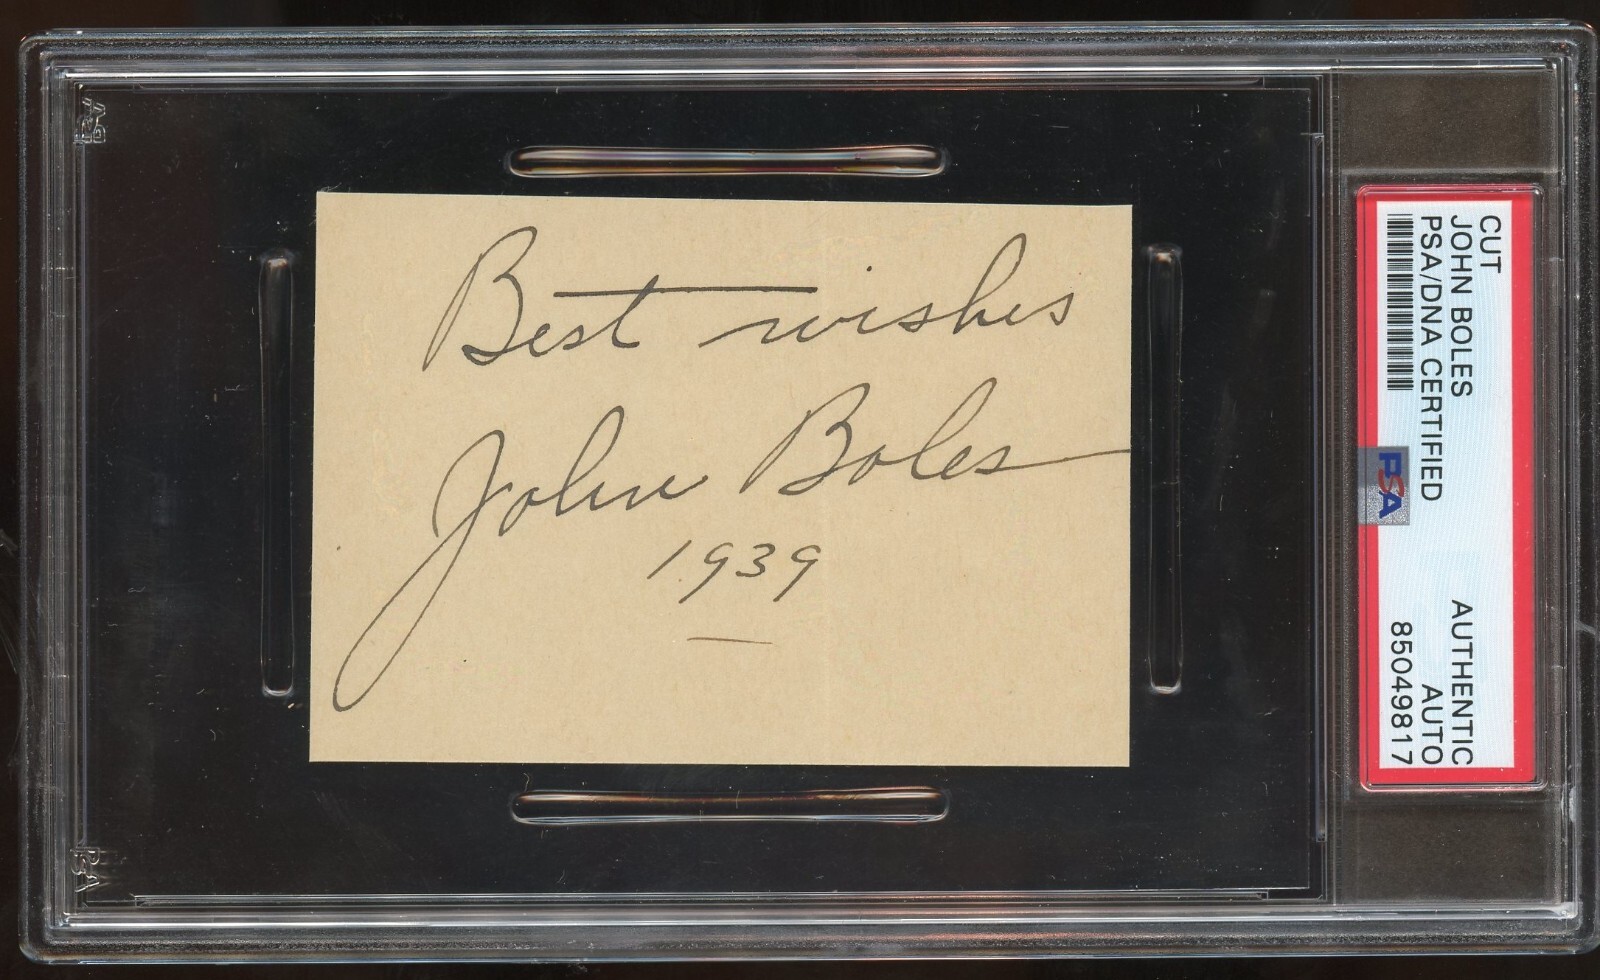 Best wishes
John Boles
1939
CUT
JOHN BOLES
PSA/DNA CERTIFIED
AUTHENTIC
AUTO
85049817
PSA
PSA